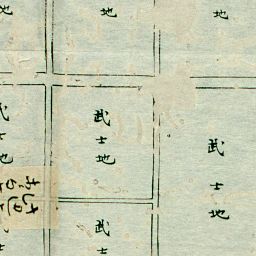 地
地
地
武士地
武士地
武士地
武士